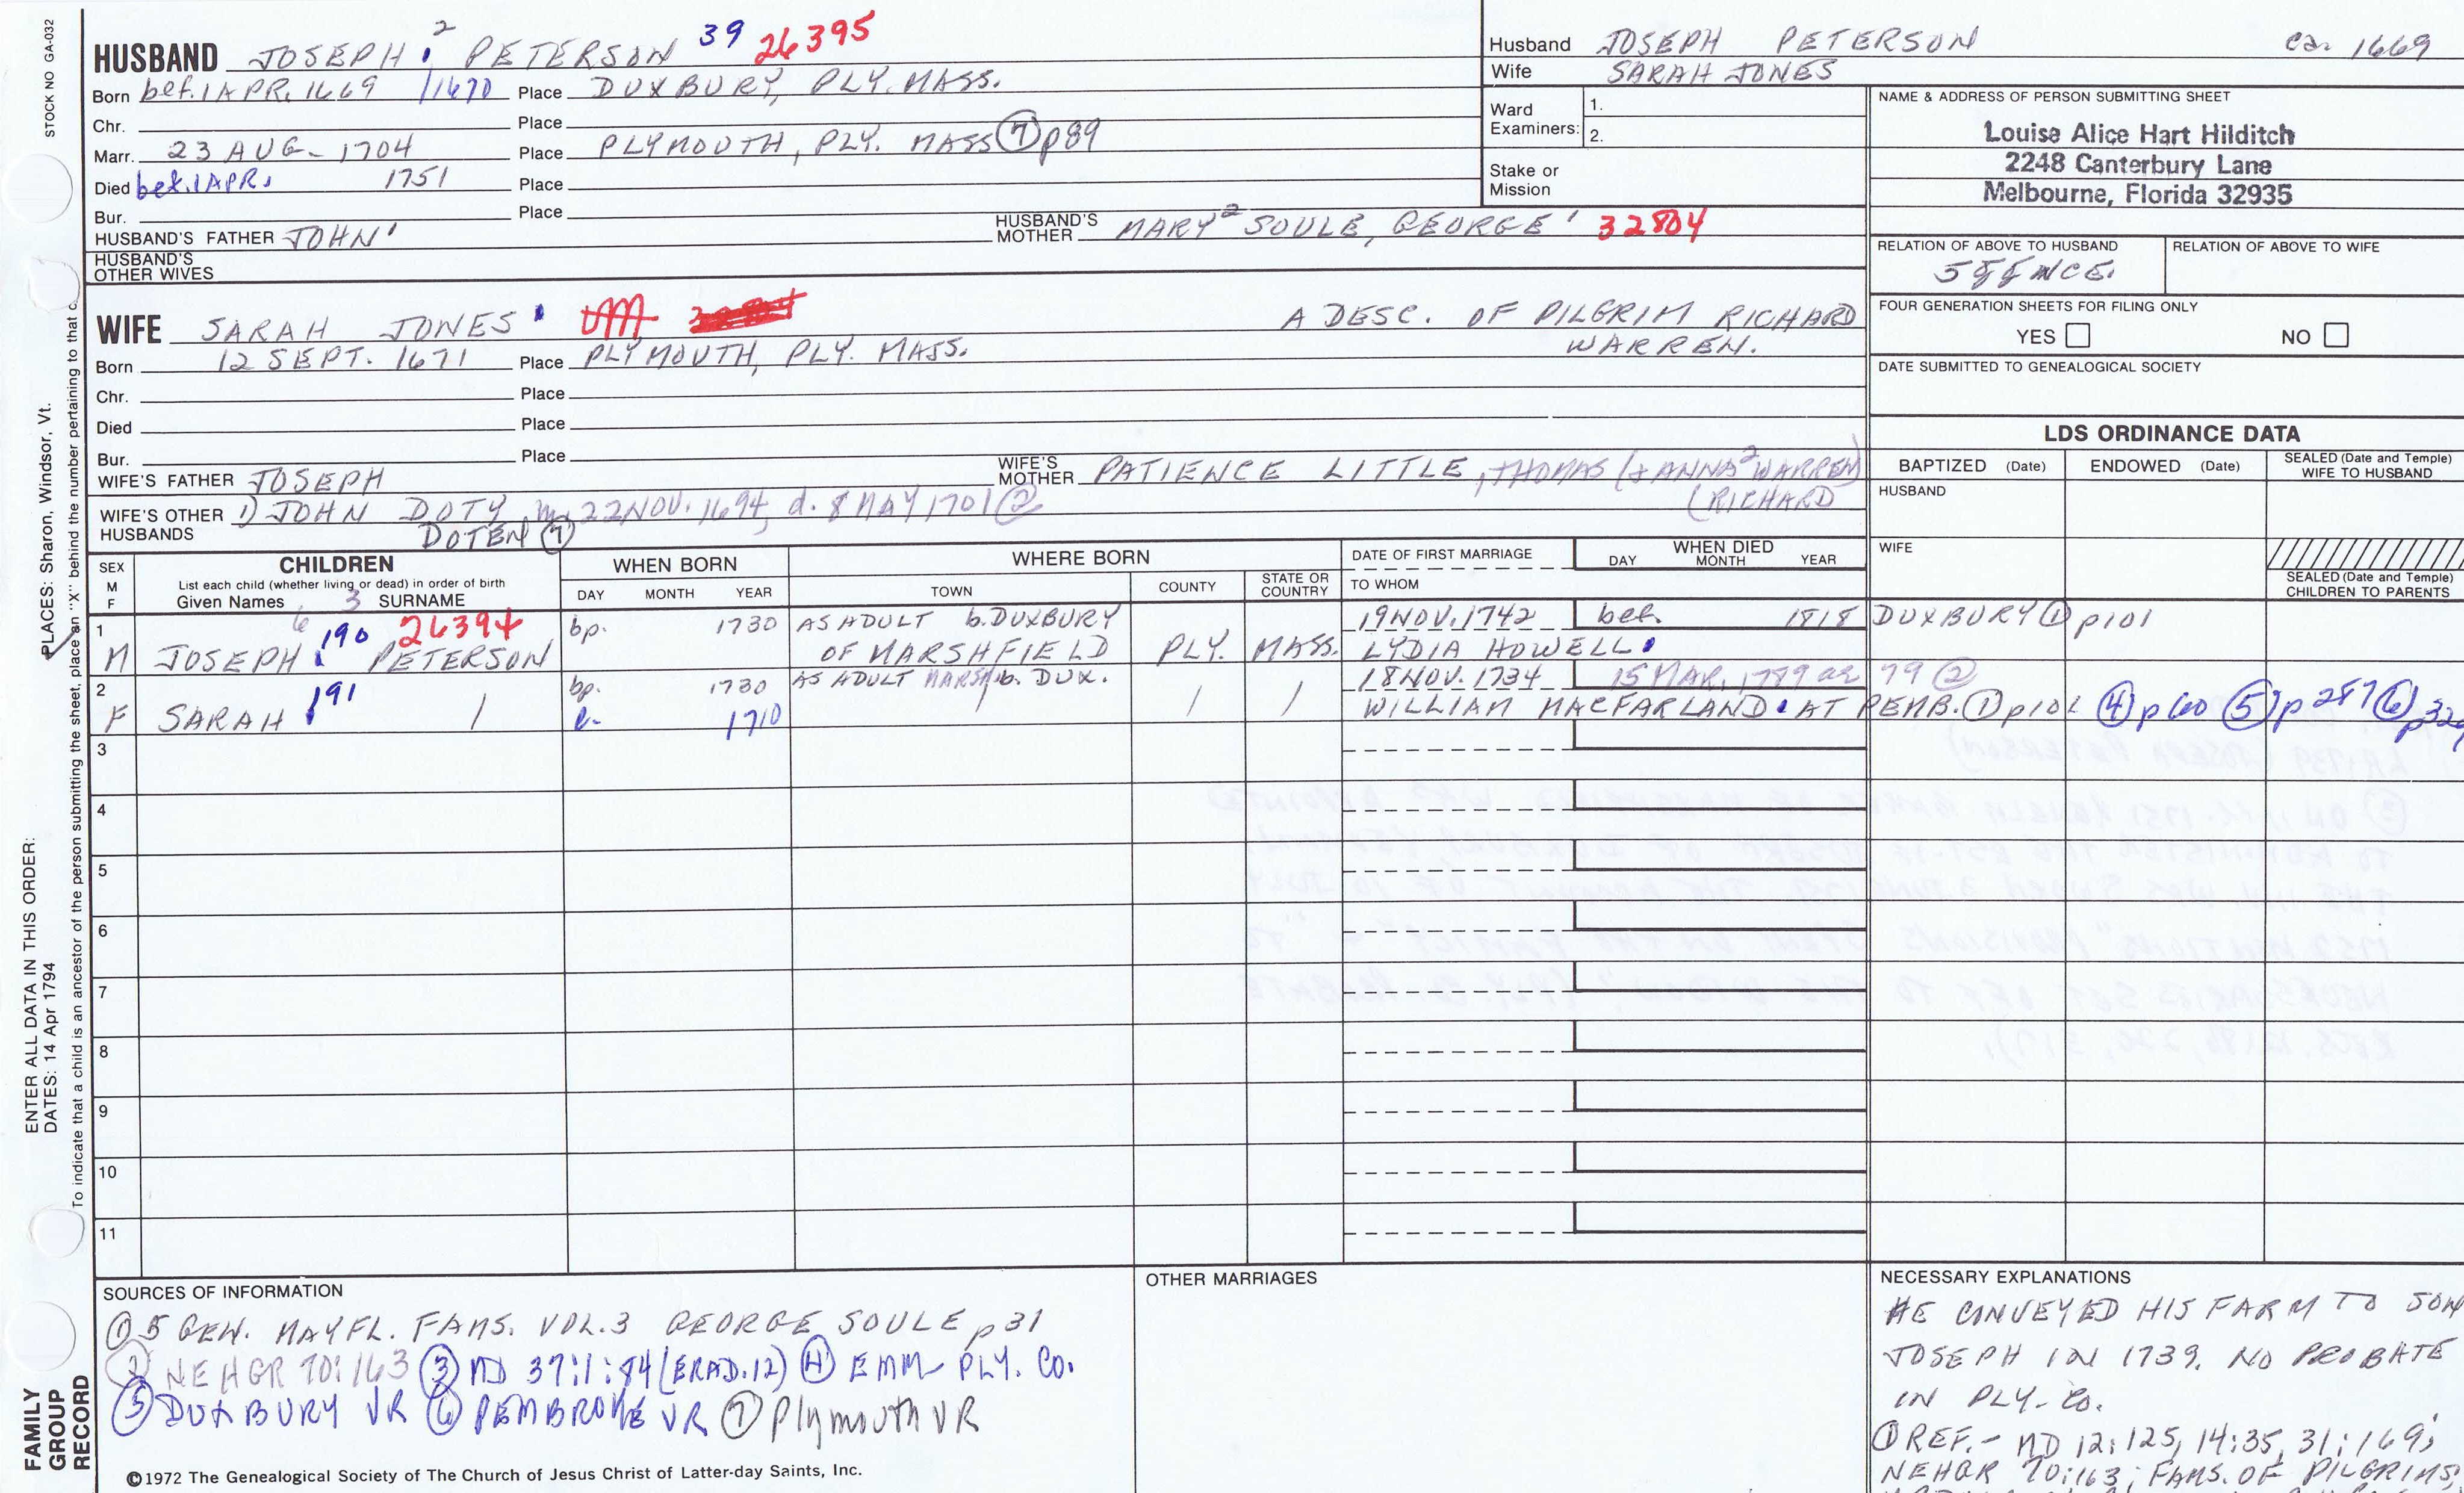 STOCK NO GA-032
HUSBAND JOSEPH 2 PETERSON 39 26395
Born bef. 1 APR. 1669 /1670 Place DUXBURY, PLY. MASS.
Chr. Place
Marr. 23 AUG- 1704 Place PLYMOUTH, PLY. MASS (7) p89
Died bef. 1 APR. 1751 Place
Bur. Place
HUSBAND'S FATHER JOHN 1 HUSBAND'S MOTHER MARY 2 SOULE, GEORGE 1 32804
HUSBAND'S OTHER WIVES
Husband JOSEPH PETERSON ca. 1669
Wife SARAH JONES
Ward Examiners: 1.
2.
Stake or Mission
NAME & ADDRESS OF PERSON SUBMITTING SHEET
Louise Alice Hart Hilditch
2248 Canterbury Lane
Melbourne, Florida 32935
RELATION OF ABOVE TO HUSBAND RELATION OF ABOVE TO WIFE
FOUR GENERATION SHEETS FOR FILING ONLY
YES NO
DATE SUBMITTED TO GENEALOGICAL SOCIETY
WIFE SARAH JONES A DESC. OF PILGRIM RICHARD
WARREN.
Born 12 SEPT. 1671 Place PLYMOUTH, PLY. MASS.
Chr. Place
Died Place
Bur. Place
WIFE'S FATHER JOSEPH WIFE'S MOTHER PATIENCE LITTLE, THOMAS (& ANNA 2 WARREN)
(RICHARD
WIFE'S OTHER HUSBANDS 1) JOHN DOTY m. 22 NOV. 1694, d. 8 MAY 1701 (2)
DOTEN (7)
LDS ORDINANCE DATA
BAPTIZED (Date) ENDOWED (Date) SEALED (Date and Temple) WIFE TO HUSBAND
HUSBAND
WIFE
SEALED (Date and Temple) CHILDREN TO PARENTS
SEX M F
CHILDREN
List each child (whether living or dead) in order of birth
Given Names 3 SURNAME
WHEN BORN
DAY MONTH YEAR
WHERE BORN
TOWN COUNTY STATE OR COUNTRY
DATE OF FIRST MARRIAGE
TO WHOM
WHEN DIED
DAY MONTH YEAR
1 190 26394 bp. 1730 AS ADULT b. DUXBURY 19 NOV. 1742 bef. 1818 DUXBURY (1) p101
M JOSEPH PETERSON OF MARSHFIELD PLY. MASS. LYDIA HOWELL
2 191 bp. 1730 AS ADULT MARSH b. DUX. 18 NOV. 1734 15 MAR. 1789 ae 79 (2)
F SARAH / c- 1710 / / WILLIAM MACFARLAND AT PEMB. (1) p102 (4) p60 (5) p287 (6) p329
3
4
5
6
7
8
9
10
11
SOURCES OF INFORMATION
(1) 5 GEN. MAYFL. FAMS. VOL. 3 GEORGE SOULE p31
(2) NEHGR 70:163 (3) MD 37:1:84 (ERAD.12) (4) EMM- PLY. CO.
(5) DUXBURY VR (6) PEMBROKE VR (7) Plymouth VR
©1972 The Genealogical Society of The Church of Jesus Christ of Latter-day Saints, Inc.
OTHER MARRIAGES
NECESSARY EXPLANATIONS
HE CONVEYED HIS FARM TO SON
JOSEPH IN 1739. NO PROBATE
IN PLY. CO.
(1) REF.- MD 12:125, 14:35, 31:169;
NEHGR 70:163; FAMS. OF PILGRIMS,
PLACES: Sharon, Windsor, Vt.
ENTER ALL DATA IN THIS ORDER:
DATES: 14 Apr 1794
To indicate that a child is an ancestor of the person submitting the sheet, place an "X" behind the number pertaining to that c
FAMILY
GROUP
RECORD